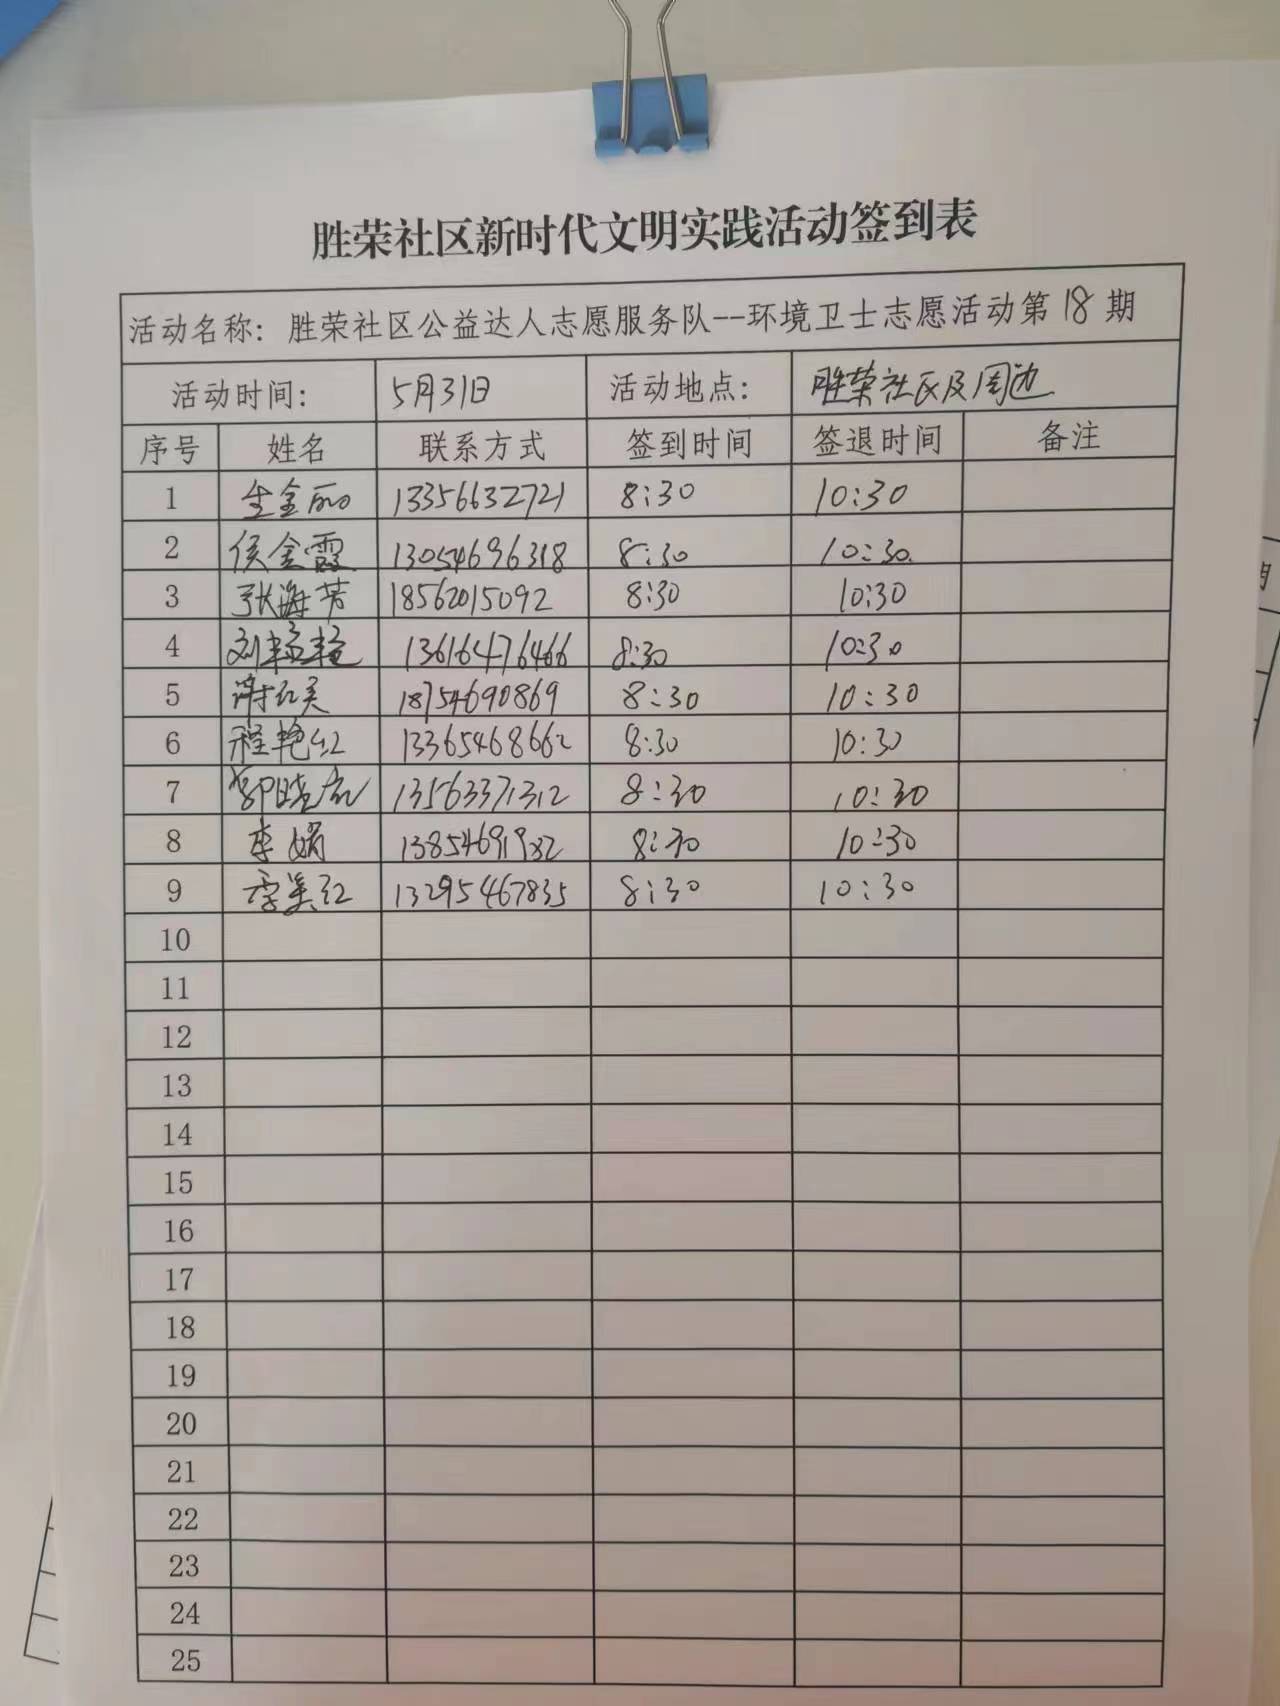 胜荣社区新时代文明实践活动签到表
活动名称：胜荣社区公益达人志愿服务队--环境卫士志愿活动第18期
活动时间： 5月31日 活动地点： 胜荣社区及周边
序号 姓名 联系方式 签到时间 签退时间 备注
1 生金丽 13356632721 8:30 10:30
2 侯金霞 13054696318 8:30 10:30
3 张海芳 18562015092 8:30 10:30
4 刘艳艳 13616476466 8:30 10:30
5 谢红美 18754690869 8:30 10:30
6 程艳红 13365468662 8:30 10:30
7 郭晓 13563371312 8:30 10:30
8 李娟 13854691932 8:30 10:30
9 李美红 13295467835 8:30 10:30
10
11
12
13
14
15
16
17
18
19
20
21
22
23
24
25